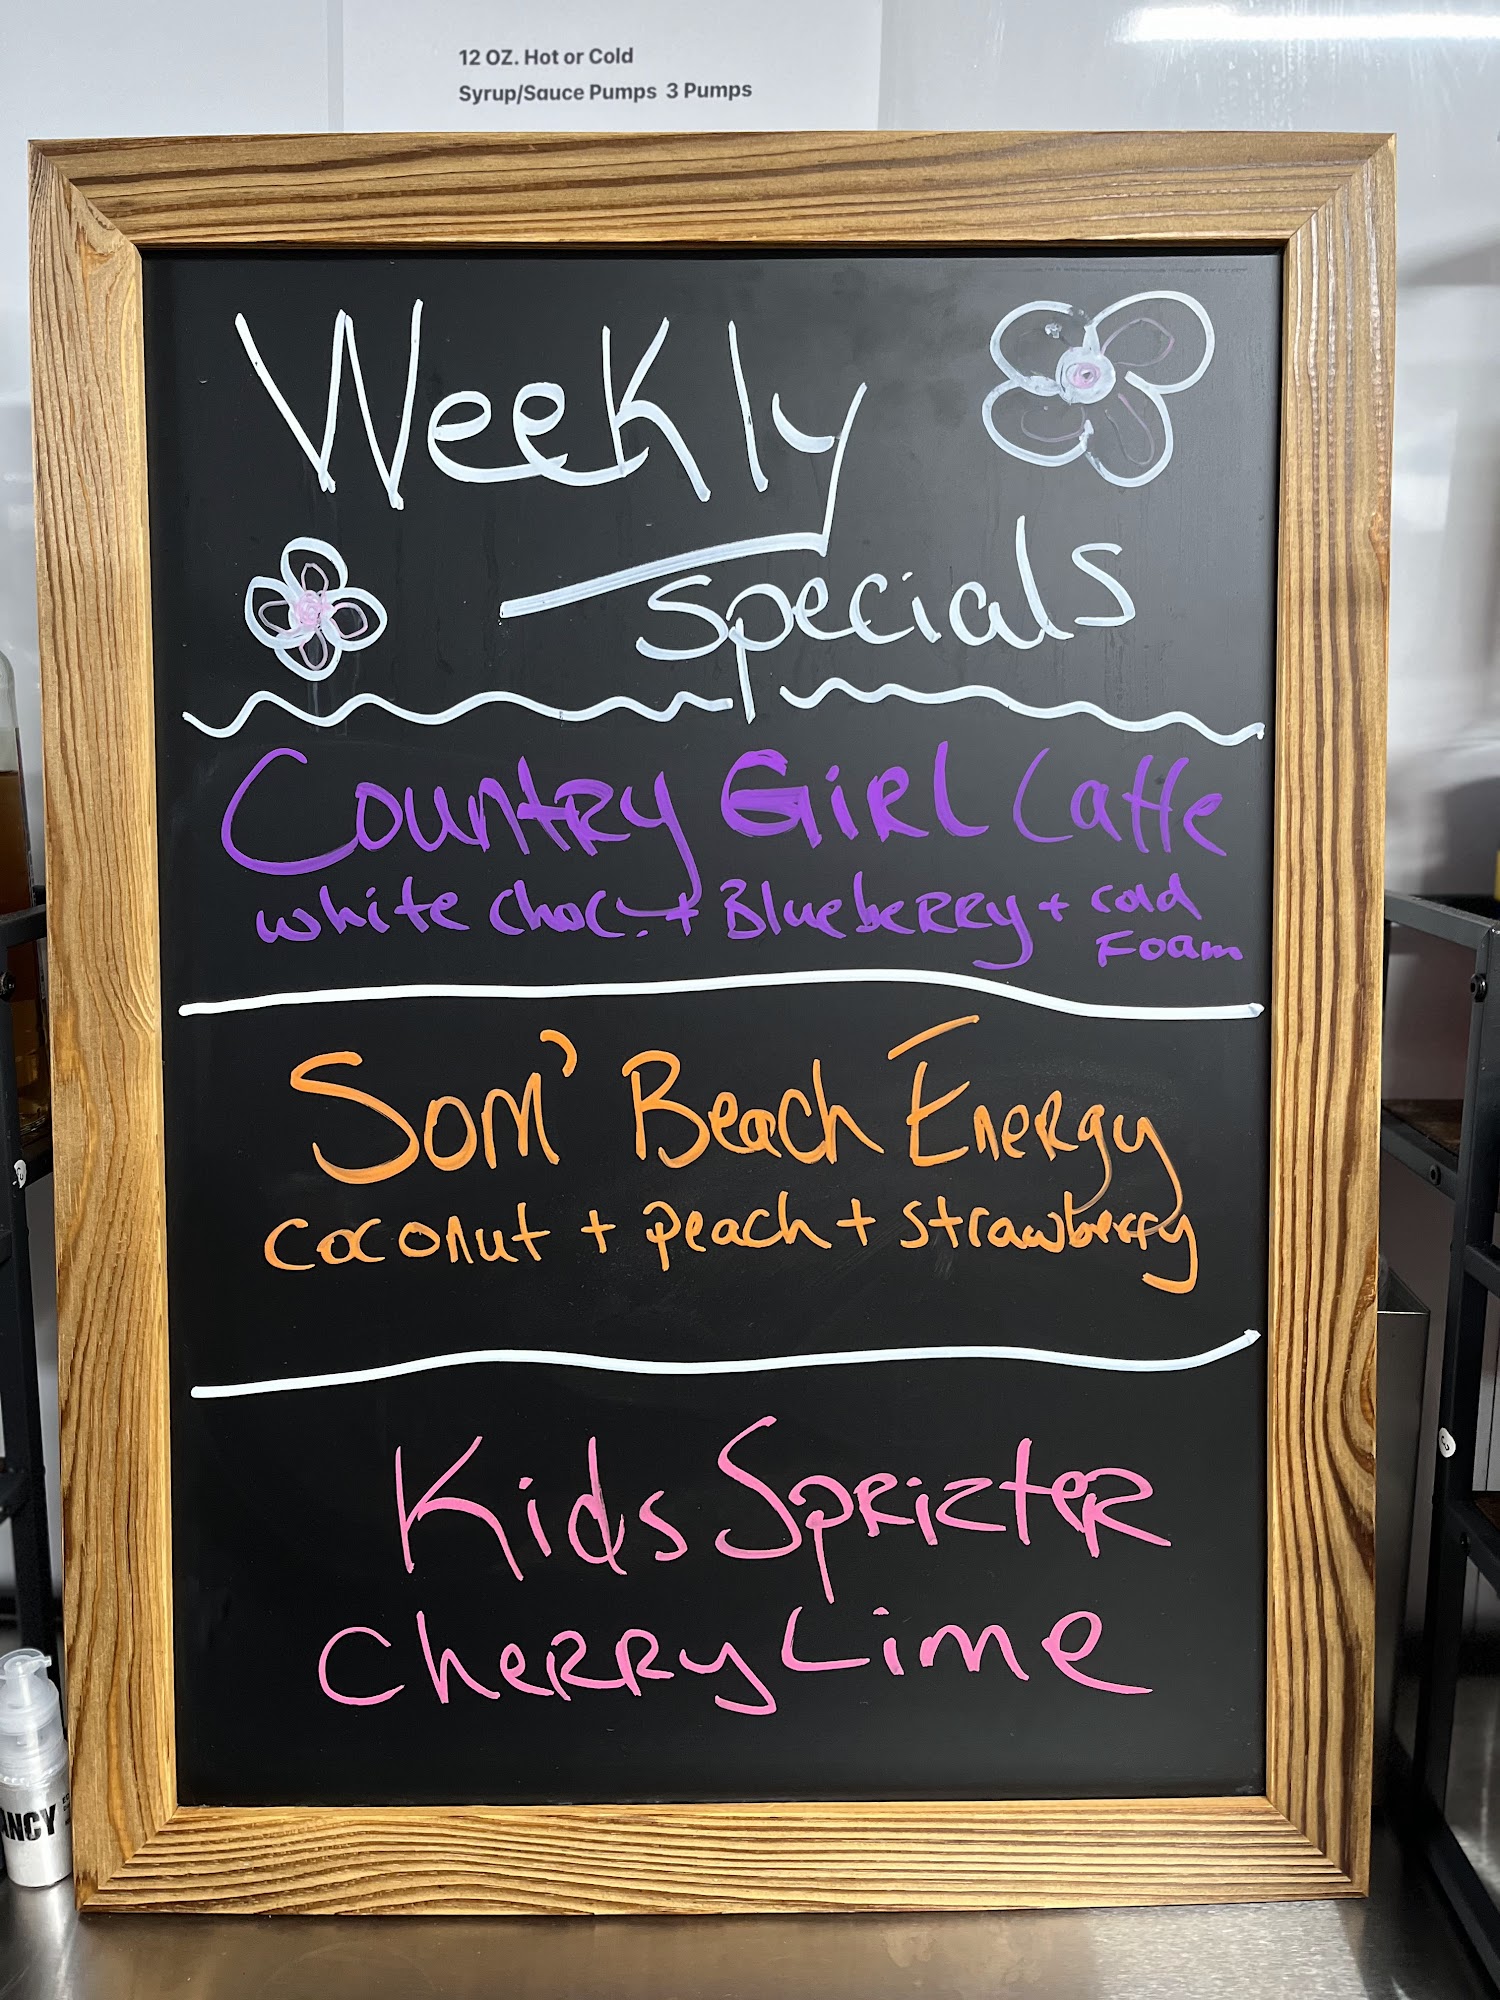 12 OZ. Hot or Cold
Syrup/Sauce Pumps 3 Pumps
Weekly
specials
Country GiRL Latte
white choc. + BlueberRy + cold
Foam
Som' Beach Energy
coconut + peach + strawberry
Kids SpRizteR
CheRRy Lime
ANCY